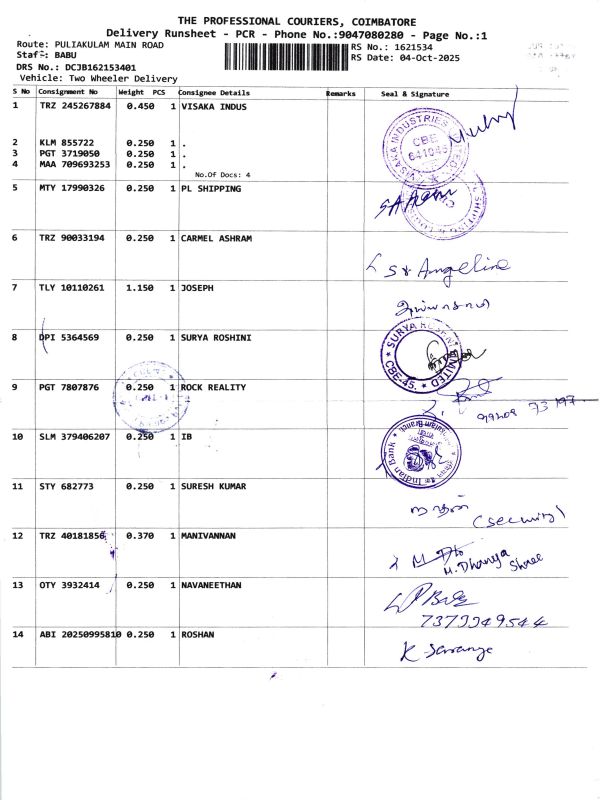 THE PROFESSIONAL COURIERS, COIMBATORE
Delivery Runsheet - PCR - Phone No.:9047080280 - Page No.:1
Route: PULIAKULAM MAIN ROAD RS No.: 1621534
Staff: BABU RS Date: 04-Oct-2025
DRS No.: DCJB162153401
Vehicle: Two Wheeler Delivery
S No Consignment No Weight PCS Consignee Details Remarks Seal & Signature
1 TRZ 245267884 0.450 1 VISAKA INDUS
VISAKA INDUSTRIES CBE
2 KLM 855722 0.250 1 .
3 PGT 3719050 0.250 1 .
4 MAA 709693253 0.250 1 .
No.Of Docs: 4
5 MTY 17990326 0.250 1 PL SHIPPING
6 TRZ 90033194 0.250 1 CARMEL ASHRAM
Angeline
7 TLY 10110261 1.150 1 JOSEPH
8 DPI 5364569 0.250 1 SURYA ROSHINI
SURYA ROSHNI LIMITED CBE-45.
9 PGT 7807876 0.250 1 ROCK REALITY
10 SLM 379406207 0.250 1 IB
Indian Bank
11 STY 682773 0.250 1 SURESH KUMAR
(Security)
12 TRZ 40181856 0.370 1 MANIVANNAN
M. Dhanya Shree
13 OTY 3932414 0.250 1 NAVANEETHAN
14 ABI 20250995810 0.250 1 ROSHAN